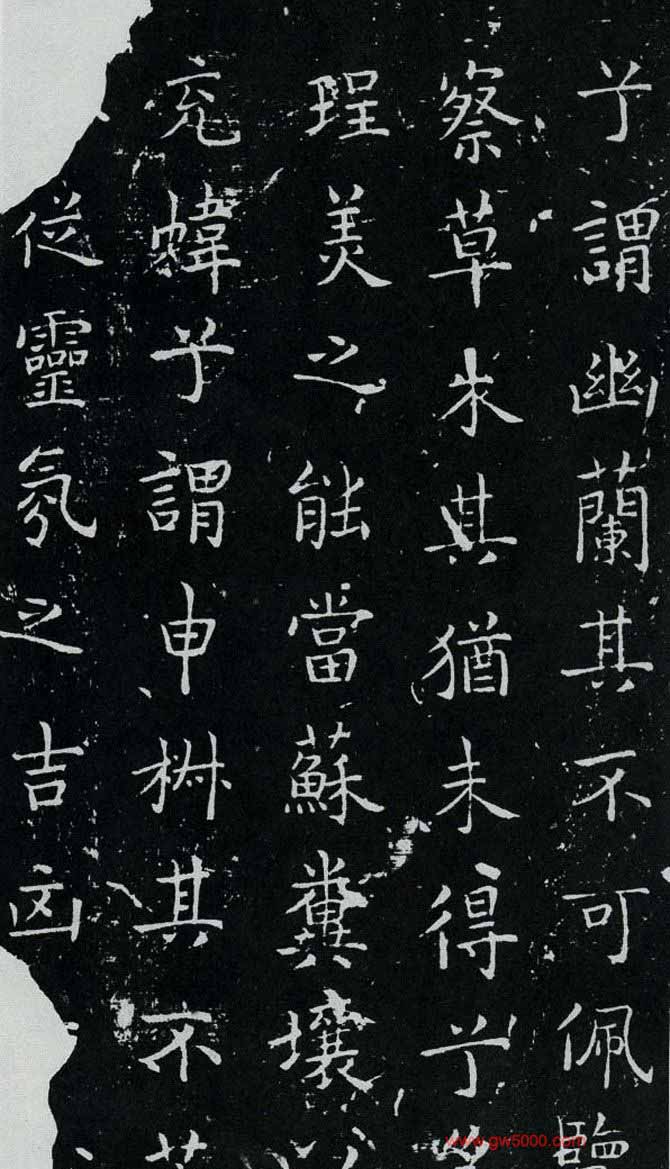 兮謂幽蘭其不可佩
察草木其猶未得兮
珵美之能當蘇糞壤以
充幃兮謂申椒其不
從靈氛之吉
www.gw5000.com